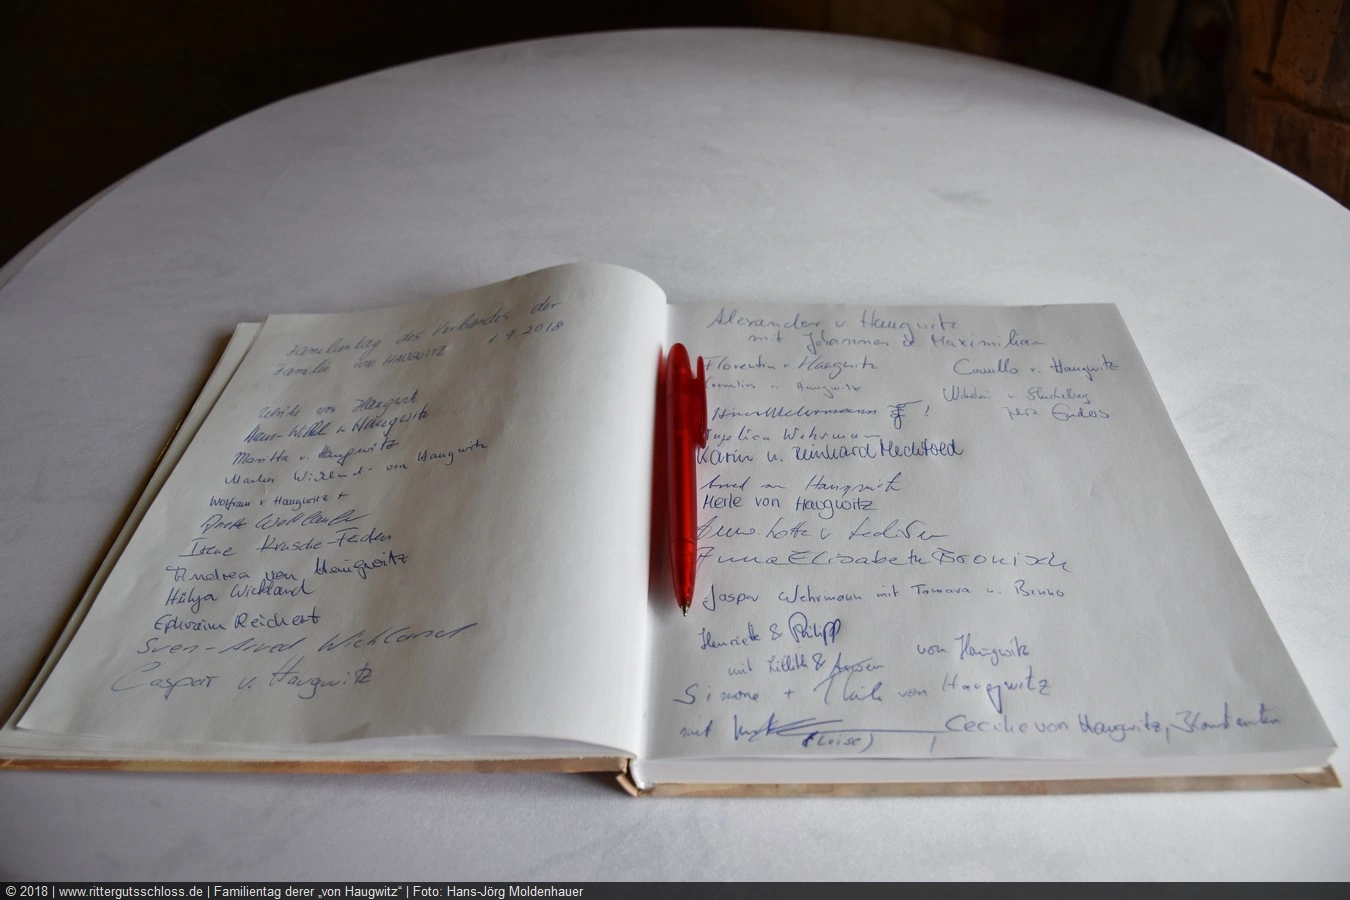 Familientag des Verbandes der
Familie von HAUGWITZ 1.9.2018
von Haugwitz
v Haugwitz
Maritta v. Haugwitz
von Haugwitz
Wolfram v Haugwitz +
Irene Krusche-Feiden
Andrea von Haugwitz
Hülya Wichland
Ephraim Reichert
Sven-Arved Wichland
Caspar v. Haugwitz
Alexander v. Haugwitz
mit Johannes & Maximilian
Florentin v. Haugwitz
Camillo v. Haugwitz
Cornelius v. Haugwitz
Wehrmann !
Jens Enders
Angelica Wehrmann
Karin u. Reinhard Mechtold
Arved von Haugwitz
Merle von Haugwitz
Anna Elisabeth Bronisch
Jaspar Wehrmann mit Tamara u. Bruno
Henriette & Philipp
mit Lillith & von Haugwitz
Simone + Thilo von Haugwitz
mit
(Loise)
Cecilie von Haugwitz, Konstantin
© 2018 | www.rittergutsschloss.de | Familientag derer „von Haugwitz“ | Foto: Hans-Jörg Moldenhauer